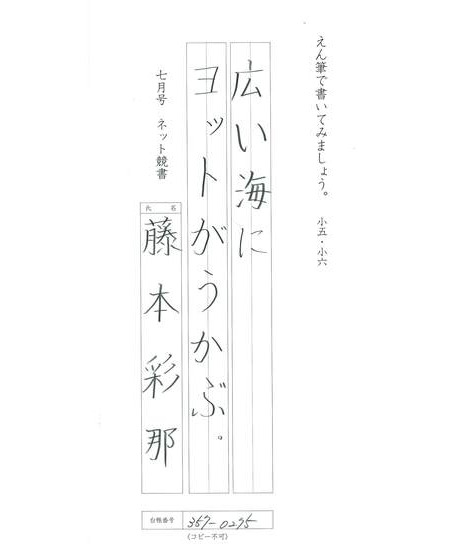 えん筆で書いてみましょう。 小五・小六
広い海に
ヨットがうかぶ。
七月号 ネット競書
氏名
藤本彩那
台帳番号 357-0295
(コピー不可)